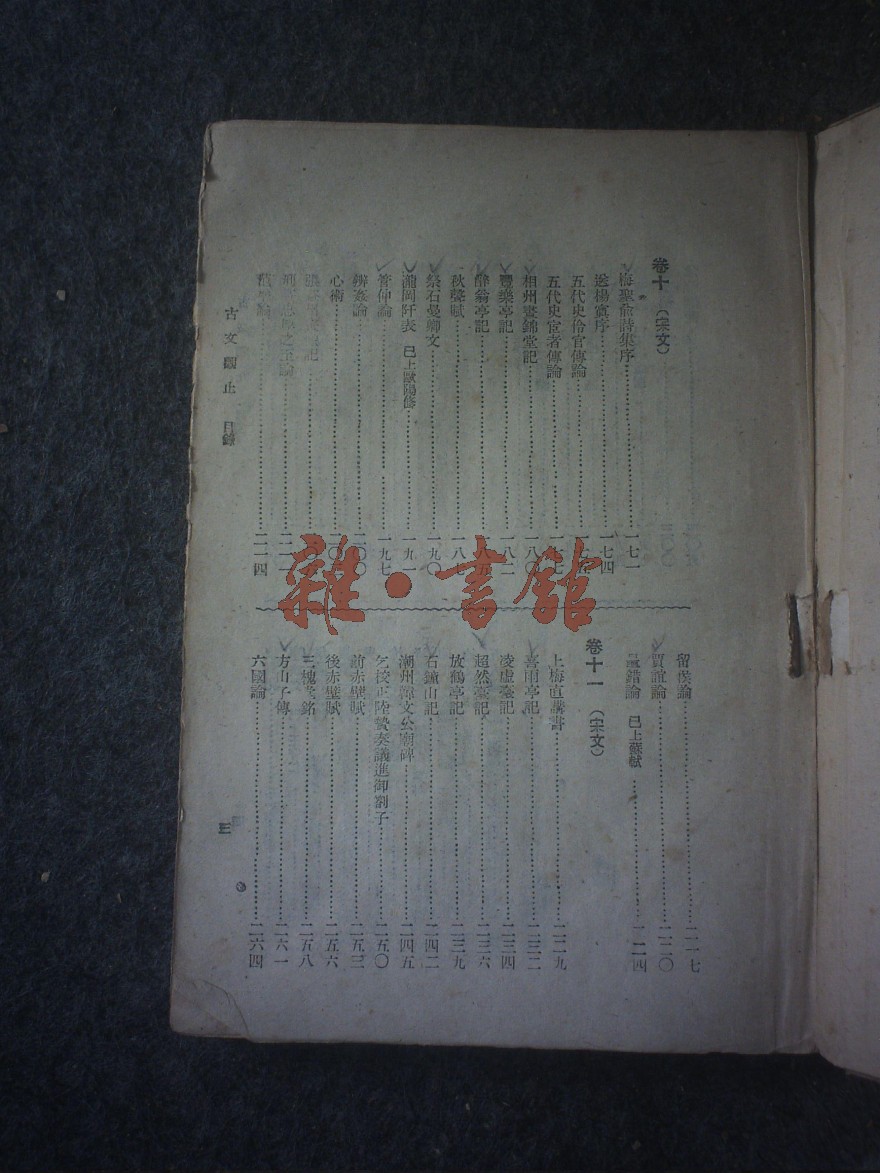 卷十 (宋文)
梅聖俞詩集序……一七一
送楊寘序……一七四
五代史伶官傳論
五代史宦者傳論……一七七
相州晝錦堂記……一八〇
豐樂亭記……一八二
醉翁亭記……一八五
秋聲賦……一八
祭石曼卿文……一九〇
瀧岡阡表 已上歐陽修……一九一
管仲論……一九七
辨姦論……二〇〇
心術
之至論
二一四
留侯論……二一七
賈誼論……二二〇
鼂錯論 已上蘇軾……二二四
卷十一 (宋文)
上梅直講書……二二九
喜雨亭記……二三二
凌虛臺記……二三四
超然臺記……二三六
放鶴亭記……二三九
石鐘山記……二四二
潮州韓文公廟碑……二四五
乞校正陸贄奏議進御劄子……二五〇
前赤壁賦……二五三
後赤壁賦……二五六
三槐堂銘……二五八
方山子傳……二六一
六國論……二六四
古文觀止 目錄
三
雜·書館